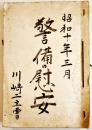 昭和十年三月
警備の慰安
川崎二三書